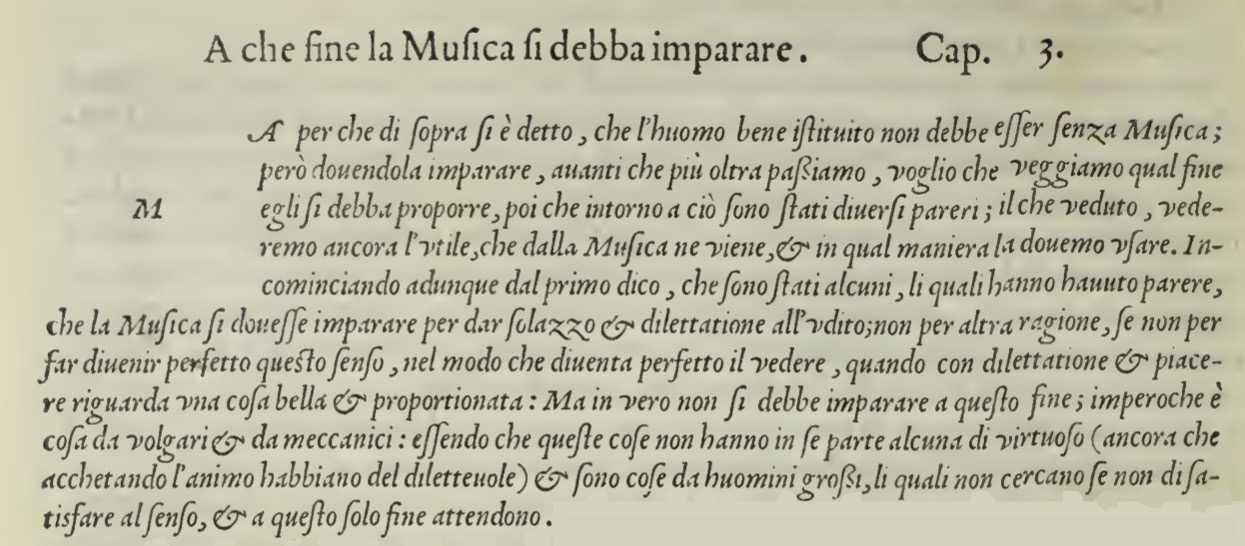 A che fine la Muſica ſi debba imparare. Cap. 3.
MA per che di ſopra ſi è detto, che l'huomo bene iſtituito non debbe eſſer ſenza Muſica;
però douendola imparare, auanti che più oltra paßiamo, voglio che veggiamo qual fine
egli ſi debba proporre, poi che intorno a ciò ſono ſtati diuerſi pareri; il che veduto, vede-
remo ancora l'vtile, che dalla Muſica ne viene, & in qual maniera la douemo vſare. In-
cominciando adunque dal primo dico, che ſono ſtati alcuni, li quali hanno hauuto parere,
che la Muſica ſi doueſſe imparare per dar ſolazzo & dilettatione all'vdito; non per altra ragione, ſe non per
far diuenir perfetto queſto ſenſo, nel modo che diuenta perfetto il vedere, quando con dilettatione & piace-
re riguarda vna coſa bella & proportionata: Ma in vero non ſi debbe imparare a queſto fine; imperoche è
coſa da volgari & da meccanici: eſſendo che queſte coſe non hanno in ſe parte alcuna di virtuoſo (ancora che
acchetando l'animo habbiano del diletteuole) & ſono coſe da huomini großi, li quali non cercano ſe non di ſa-
tisfare al ſenſo, & a queſto ſolo fine attendono.